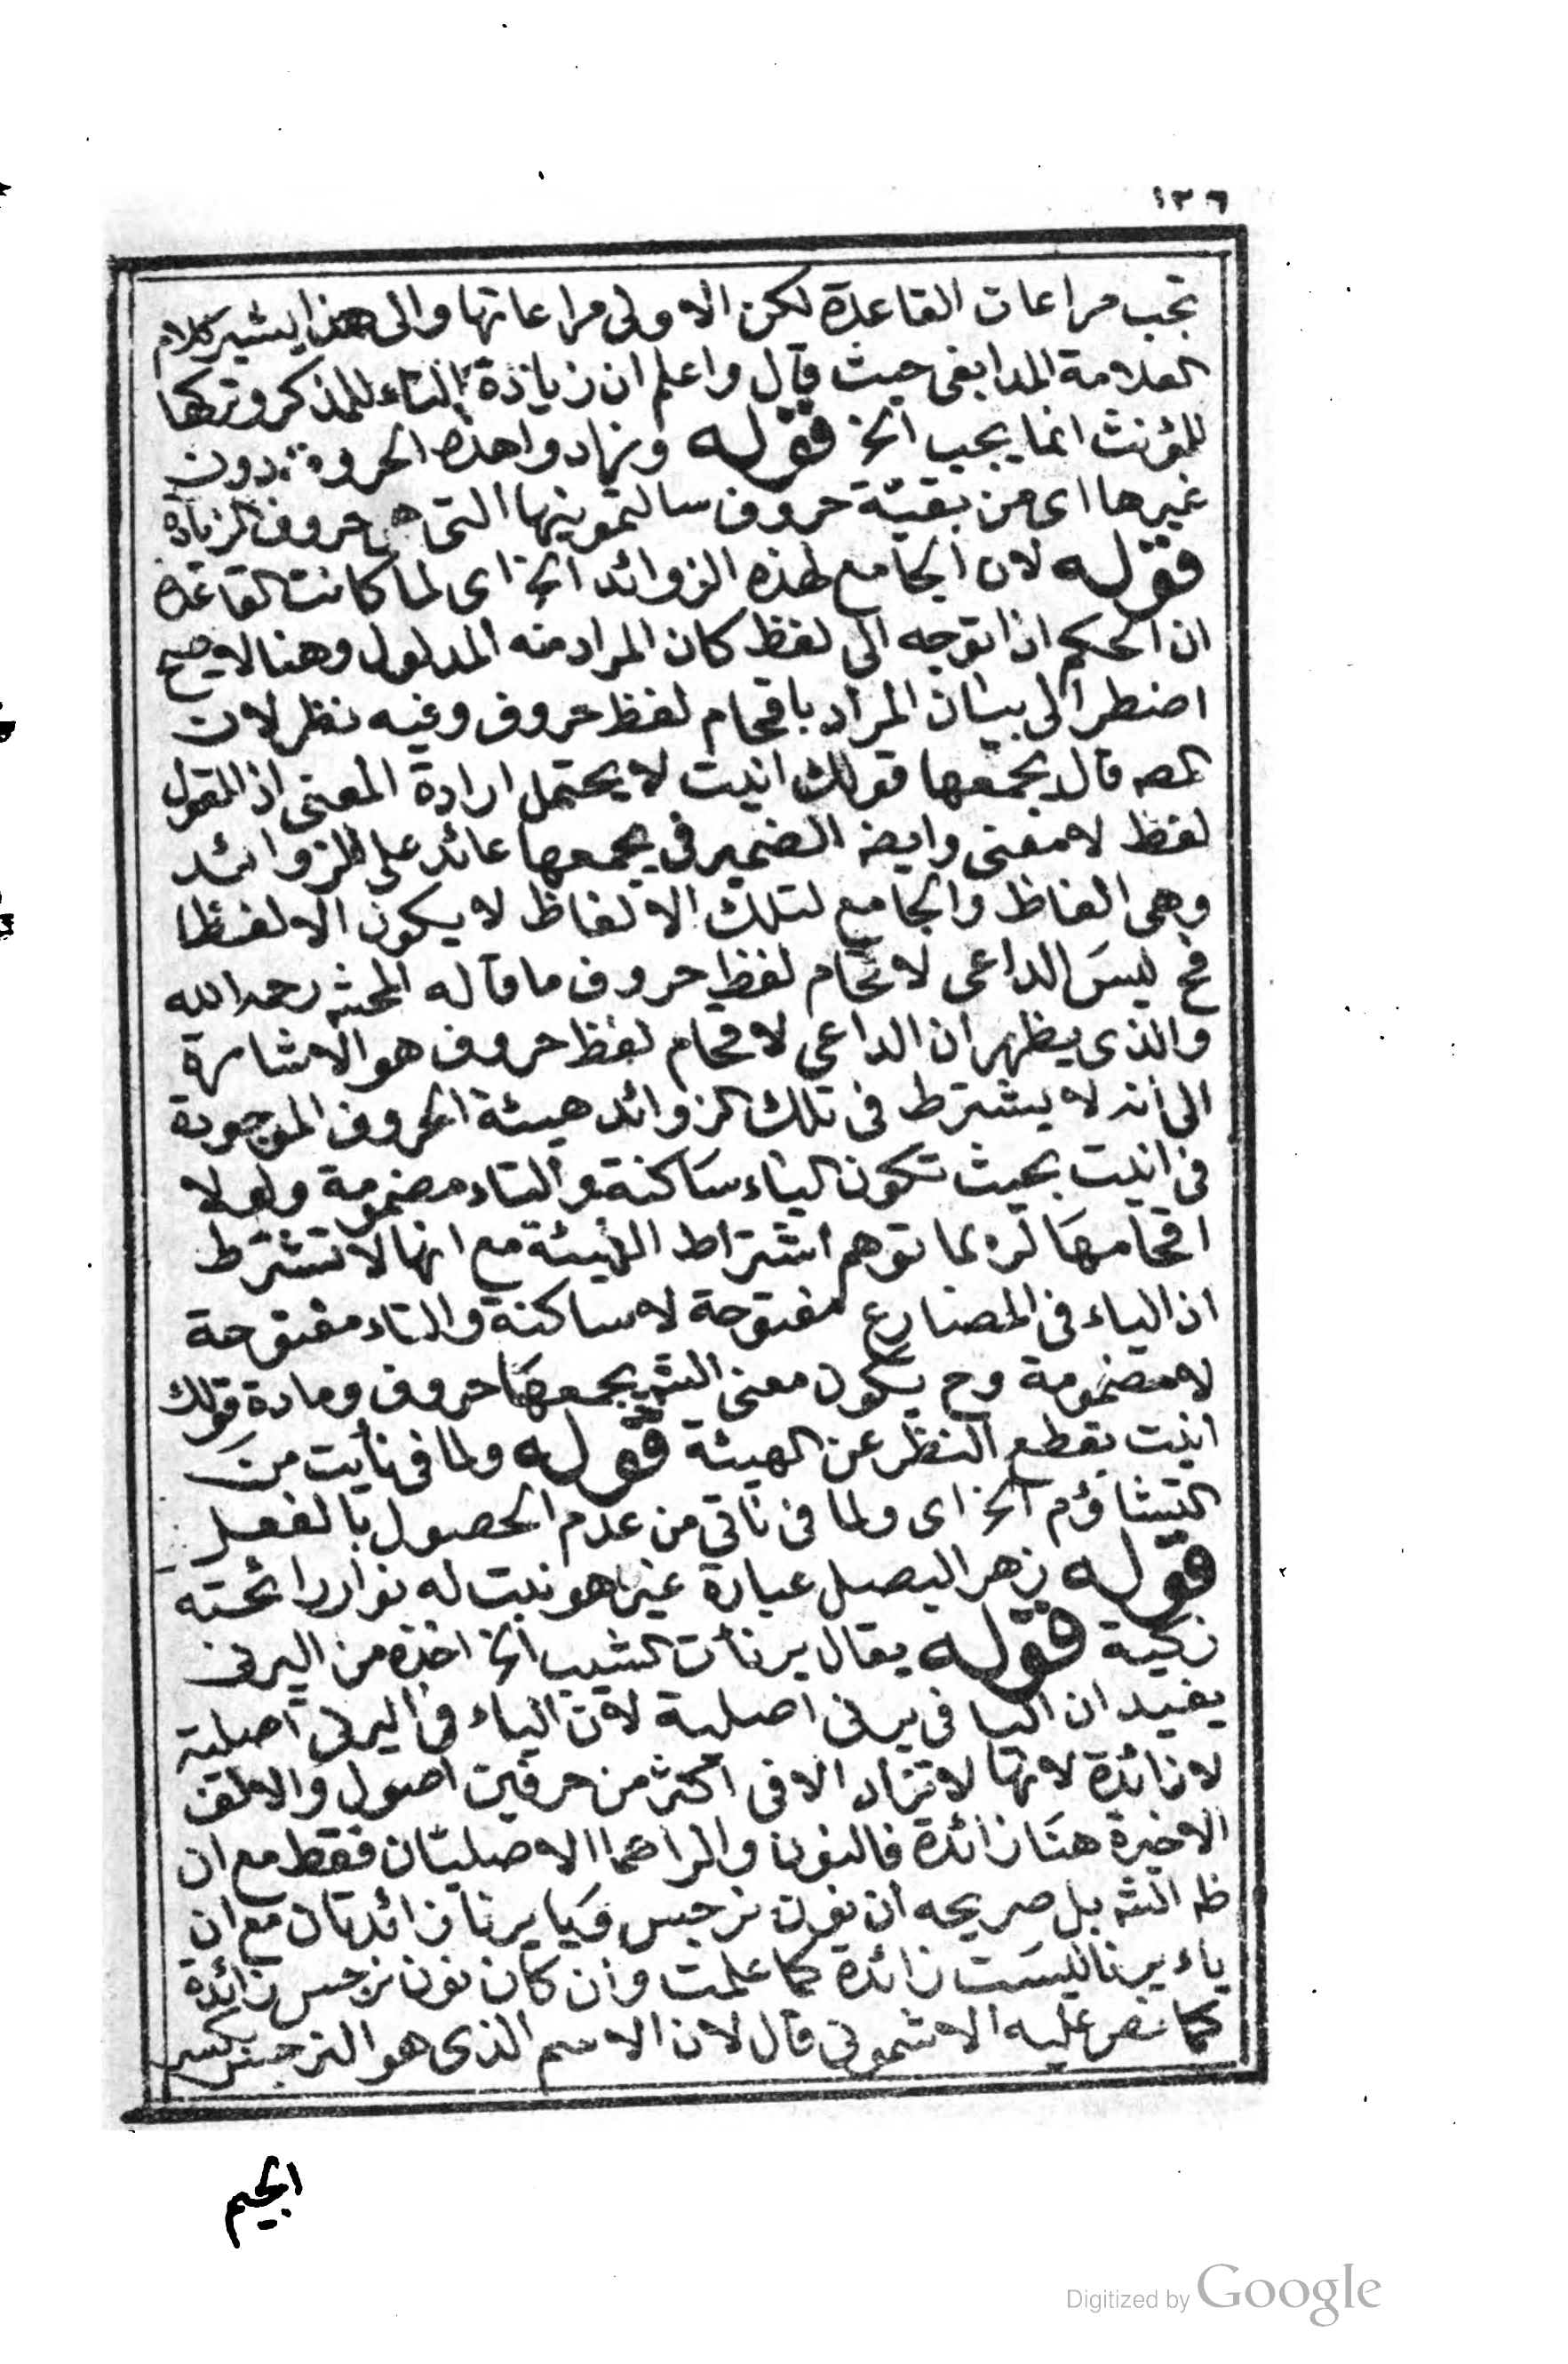 ١٢٦
تجب مراعات القاعدة لكن الاولى مراعاتها والى هذا يشير كلام
العلامة المدابغى حيث قال واعلم ان زيادة التاء للمذكر وتركها
للمؤنث انما يجب الخ قوله وزادوا هذه الحروف دون
غيرها اى من بقية حروف سالتمونيها التى هى حروف الزيادة
قوله لان الجامع لهذه الزوائد الخ اى لما كانت القاعدة
ان الحكم اذا توجه الى لفظ كان المراد منه المدلول وهنا لا يصح
اضطر الى بيان المراد باقحام لفظ حروف وفيه نظر لان
المصه قال يجمعها قولك انيت لا يحتمل ارادة المعنى اذ المقول
لفظ لا معنى وايضه الضمير فى يجمعها عائد على الزوائد
وهى الفاظ والجامع لتلك الالفاظ لا يكون الا لفظا
فح ليس الداعى لاقحام لفظ حروف ما قاله المحشه رحمه الله
والذى يظهر ان الداعى لاقحام لفظ حروف هو الاشارة
الى انه لا يشترط فى تلك الزوائد هيئة الحروف الموجودة
فى انيت بحيث تكون الياء ساكنة والتاء مضمومة ولولا
اقحامها لربما توهم اشتراط الهيئة مع انها لا تشترط
اذ الياء فى المضارع مفتوحة لا ساكنة والتاء مفتوحة
لا مضمومة وح يكون معنى الشه يجمعها حروف ومادة قولك
انيت بقطع النظر عن الهيئة قوله ولما فى نأيت من
التشاؤم الخ اى ولما فى ناتى من عدم الحصول بالفعل
قوله زهر البصل عبارة غيره هو نبت له نوار رائحته
زكية قوله يقال يرنأت الشيب الخ اخذه من اليرنى
يفيد ان اليا فى يرنى اصلية لان الياء فى اليرنى اصلية
لا زائدة لانها لا تزاد الا فى اكثر من حرفين اصول والالف
الاخيرة هنا زائدة فالنون والراهما الاصليتان فقط مع ان
ظه الشه بل صريحه ان نون نرجس ويا يرنأ زائدتان مع ان
ياء يرنا ليست زائدة كما علمت وان كان نون نرجس زائدة
كما نص عليه الاشمونى قال لان الاسم الذى هو النرجس بكسر
الجيم
Digitized by Google